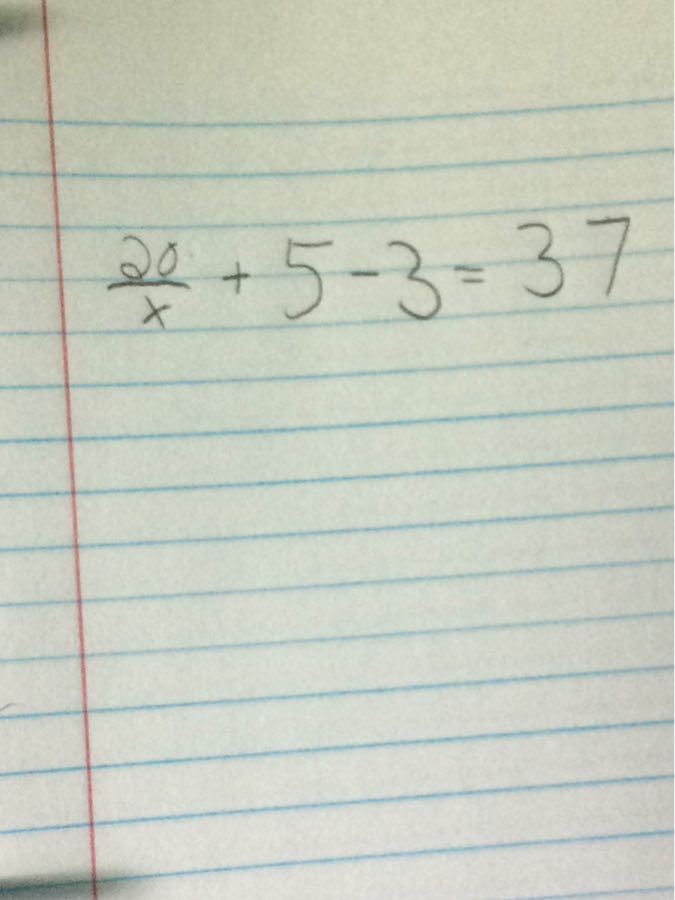 20/x + 5 - 3 = 37